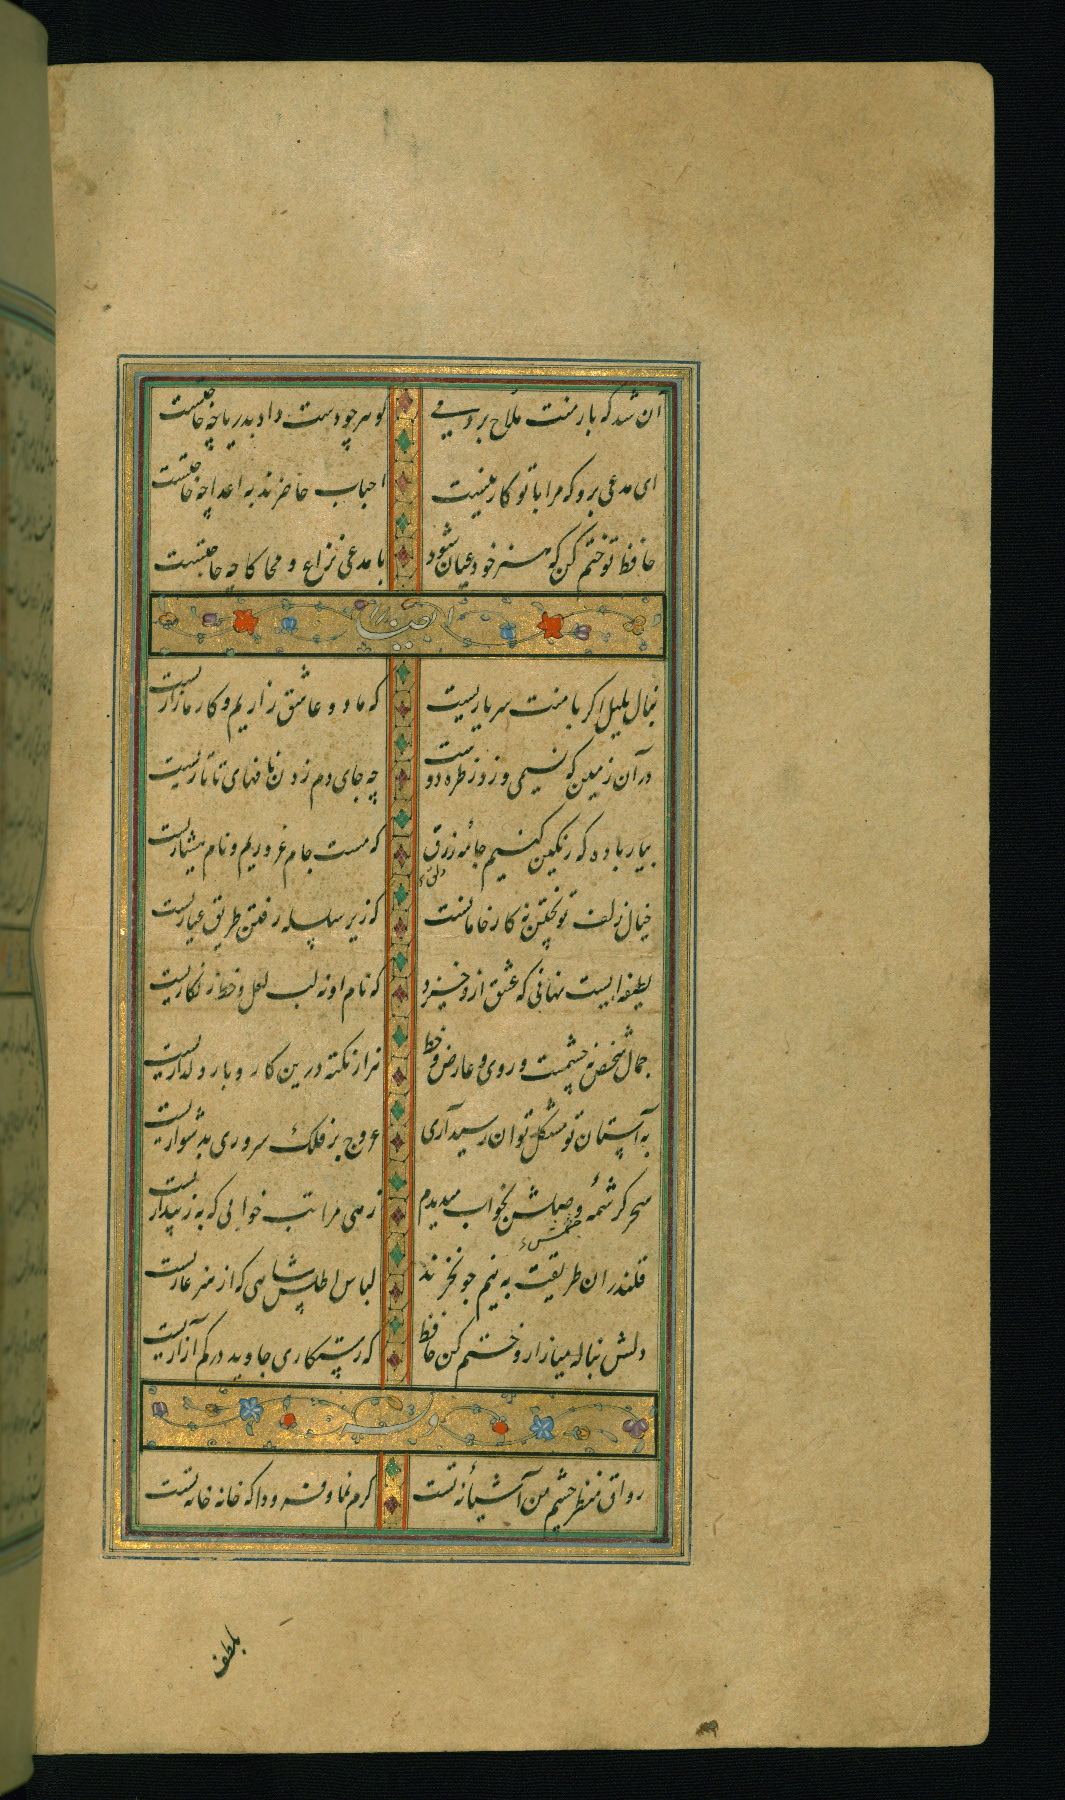 آن شد که بار منت ملاح بردمی گوهر چو دست داد بدریا چه حاجتست
ای مدعی برو که مرا با تو کار نیست احباب حاضرند به اعدا چه حاجتست
حافظ تو ختم کن که هنر خود عیان شود با مدعی نزاع و محاکا چه حاجتست
ایضا
بنال بلبل اگر با منت سر یاریست که ما دو عاشق زاریم و کار ما زاریست
در آن زمین که نسیمی وزد ز طره دوست چه جای دم زدن نافهای تاتاریست
بیار باده که رنگین کنیم جامه زرق که مست جام غروریم و نام هشیاریست
دلق
خیال زلف تو پختن نه کار خامانست که زیر سلسله رفتن طریق عیاریست
لطیفه ایست نهانی که عشق ازو خیزد که نام او نه لب لعل و خط زنگاریست
جمال شخص نه چشمست و روی و عارض و خط هزار نکته درین کار و بار دلداریست
به آستان تو مشکل توان رسید آری عروج بر فلک سروری به دشواریست
سحر کرشمه وصلش بخواب میدیدم زهی مراتب خوابی که به ز بیداریست
قلندران طریقت به نیم جو نخرند لباس اطلس شاهی که از هنر عاریست
دلش بناله میازار و ختم کن حافظ که رستگاری جاوید در کم آزاریست
وله
رواق منظر چشم من آشیانه تست کرم نما و فرود آ که خانه خانه تست
بلطف